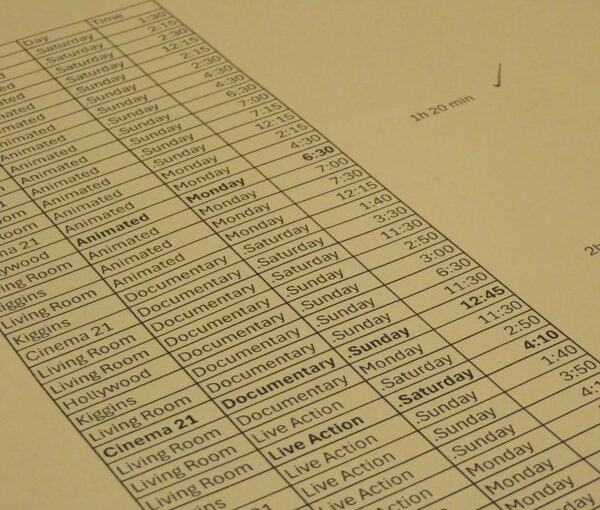 Day
Saturday
Saturday
Saturday
Sunday
Sunday
Sunday
Sunday
Sunday
Sunday
Sunday
Monday
Monday
Monday
Monday
.Saturday
Saturday
.Sunday
.Sunday
.Sunday
.Sunday
Monday
Saturday
.Saturday
.Sunday
.Sunday
Monday
Monday
Monday
Time
1:30
2:15
2:30
12:15
2:15
2:30
4:30
4:30
6:30
7:00
7:15
12:15
2:15
4:30
6:30
7:00
7:30
12:15
1:40
3:30
11:30
2:50
3:00
6:30
11:30
12:45
11:30
2:50
4:10
1:40
3:50
Animated
Animated
Animated
Animated
Animated
Animated
Animated
Animated
Documentary
Documentary
Documentary
Documentary
Documentary
Documentary
Documentary
Live Action
Live Action
Live Action
Live Action
Live Action
Kiggins
Living Room
Kiggins
Cinema 21
Living Room
Living Room
Hollywood
Kiggins
Living Room
Cinema 21
Living Room
Living Room
Living Room
1h 20 min